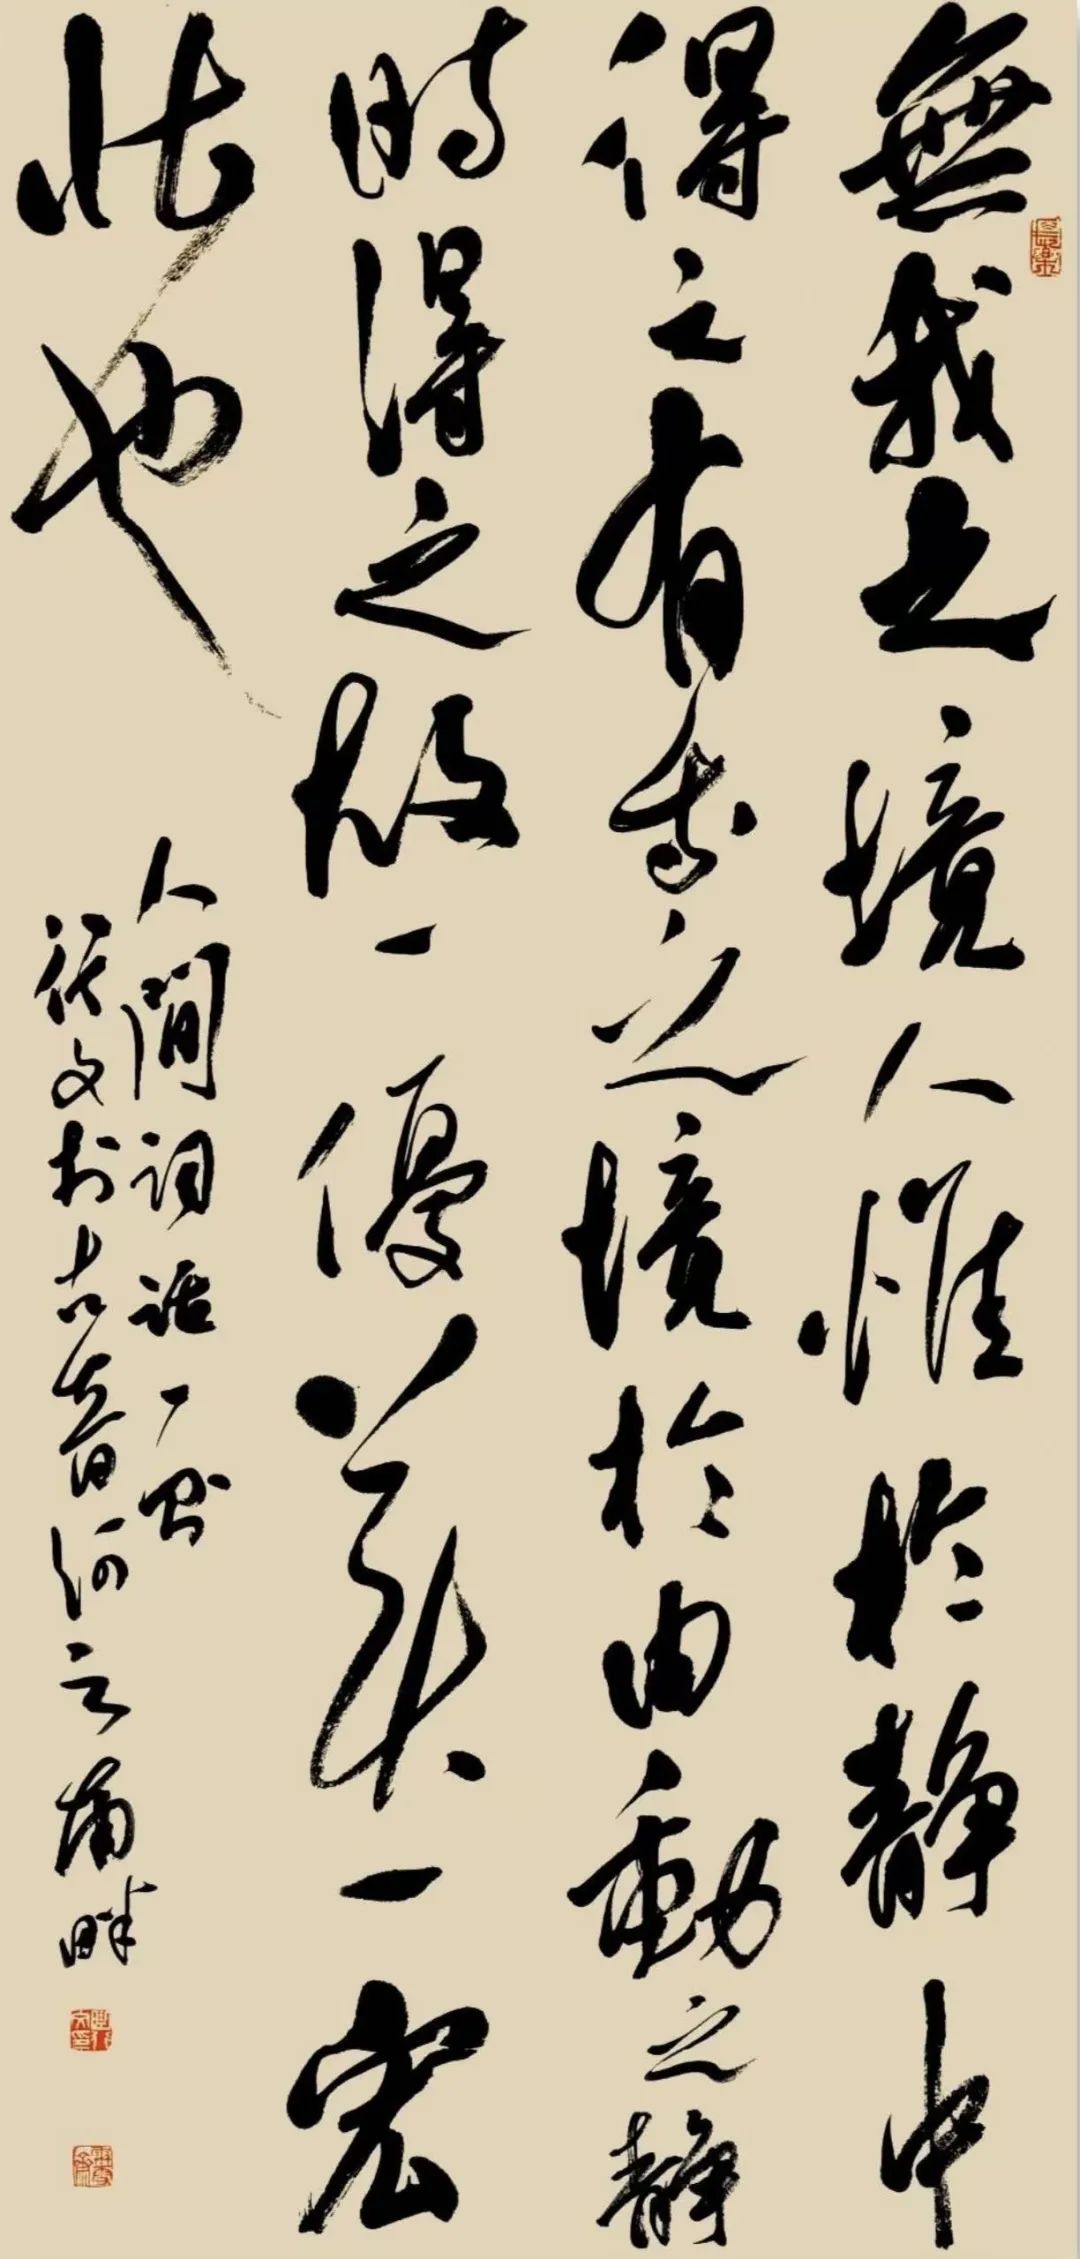 無我之境人惟於靜中
得之有我之境於由動之靜
時得之故一優美一宏
壯也
人間詞話一則
文於古晉河之南畔